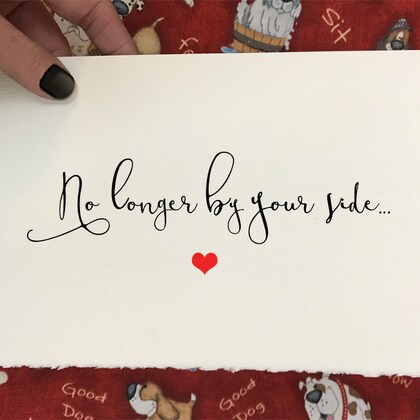 Fetch
Sit
No longer by your side...
Good
Dog
Good
Dog